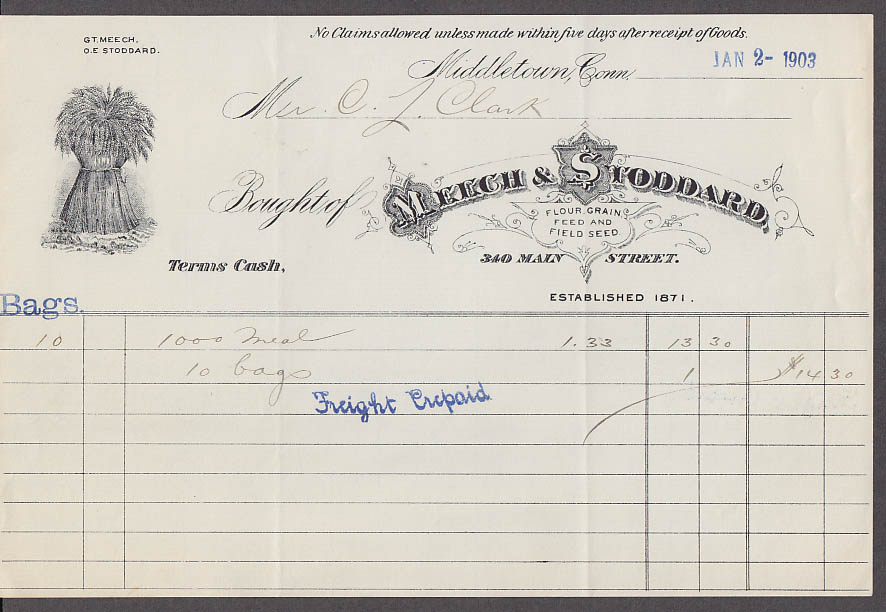 G.T. MEECH,
O.E STODDARD.
No Claims allowed unless made within five days after receipt of Goods.
Middletown, Conn. JAN 2- 1903
Mr. C. L. Clark
Bought of MEECH & STODDARD,
FLOUR, GRAIN,
FEED AND
FIELD SEED.
340 MAIN STREET.
Terms Cash,
ESTABLISHED 1871.
Bags.
10 1000 Meal 1.33 13 30
10 bags 1 $14 30
Freight Prepaid